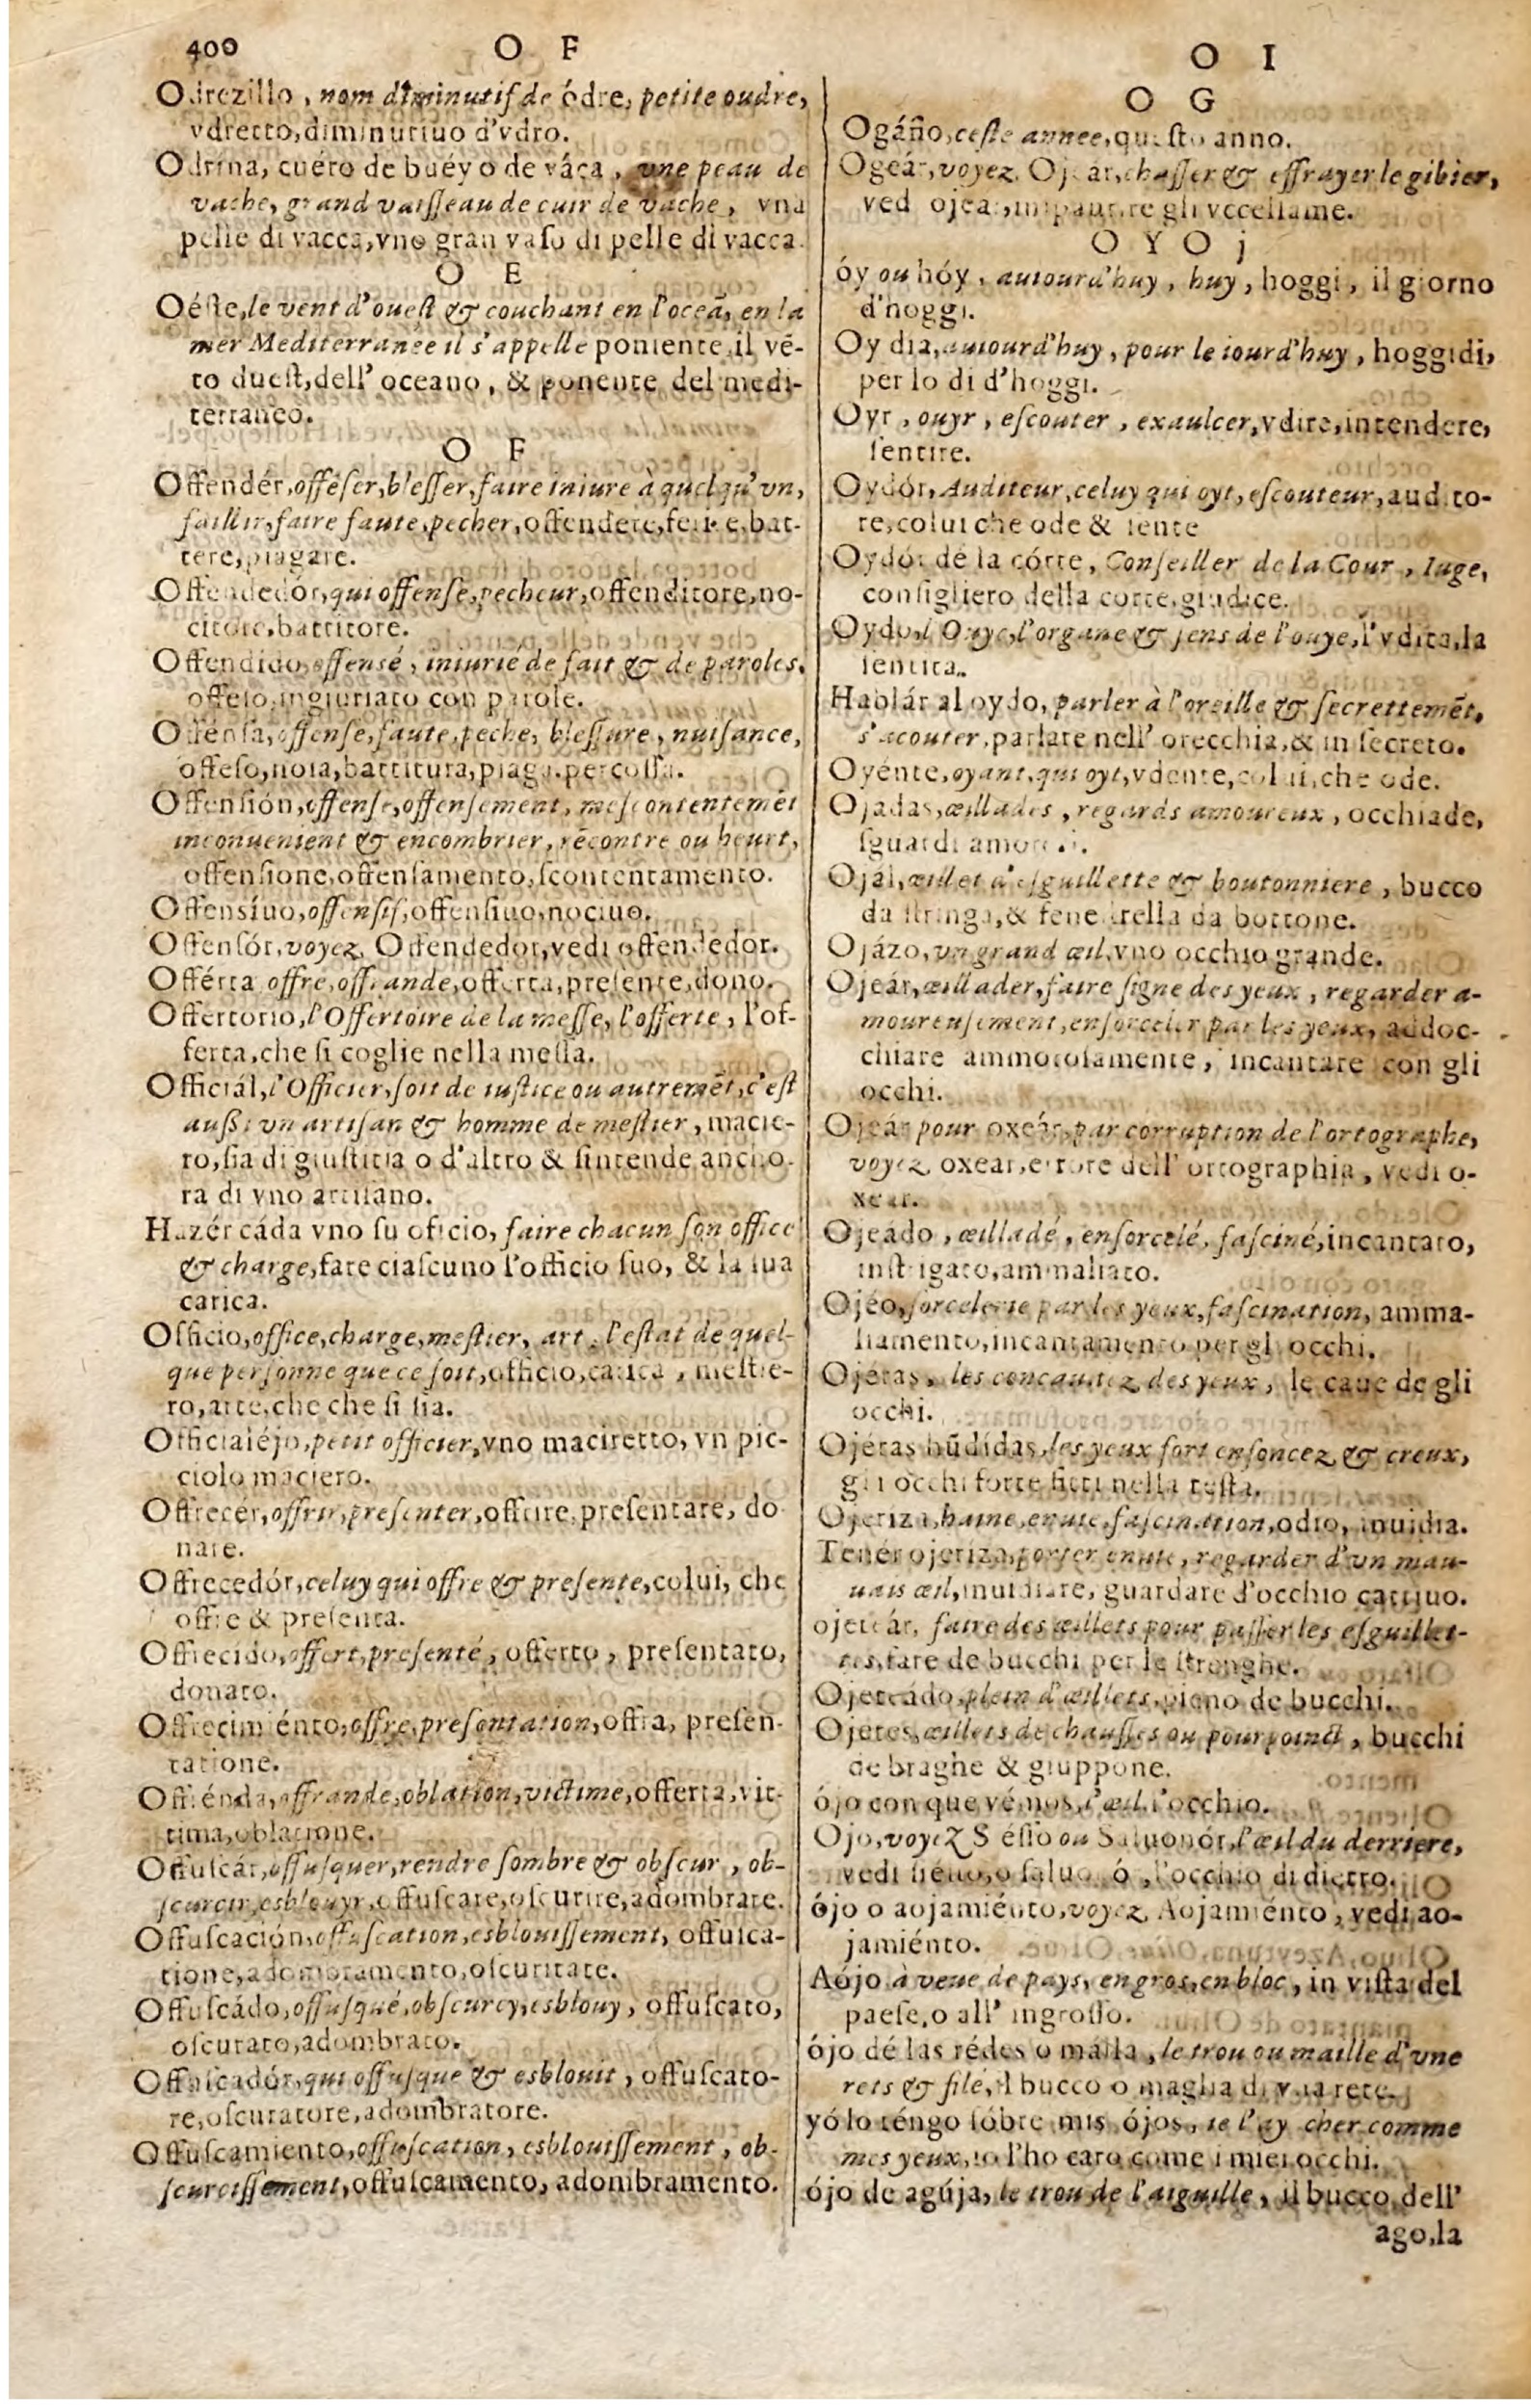 400
O F
Odrezillo, nom diminutif de ódre, petite oudre,
vdretto, diminutiuo d'vdro.
Odrína, cuéro de buéy o de váca, vne peau de
vache, grand vaisseau de cuir de vache, vna
pelle di vacca, vno gran vaſo di pelle di vacca.
O E
Oéſte, le vent d'oueſt & couchant en l'oceā, en la
mer Mediterranée il s'appelle poniente, il vē-
to dueſt, dell' oceano, & ponente del medi-
terraneo.
O F
Offendér, offēſer, bleſſer, faire iniure à quelqu'vn,
faillir, faire faute, pecher, offendere, ferire, bat-
tere, piagare.
Offendedór, qui offenſe, pecheur, offenditore, no-
citore, battitore.
Offendido, offensé, iniurié de fait & de paroles,
offeſo, ingiuriato con parole.
Offénſa, offenſe, faute, peche, bleſſure, nuiſance,
offeſo, noia, battitura, piaga, percoſſa.
Offenſión, offenſe, offenſement, meſcontentemēt
inconuenient & encombrier, rēcontre ou heurt,
offenſione, offenſamento, ſcontentamento.
Offenſíuo, offenſif, offenſiuo, nociuo.
Offenſór, voyez, Offendedor, vedi offendedor.
Offérta offre, offrande, offerta, preſente, dono.
Offertorio, l'Offertoire de la meſſe, l'offerte, l'of-
ferta, che ſi coglie nella meſſa.
Officiál, l'Officier, ſoit de iuſtice ou autremēt, c'eſt
auſſi vn artiſan & homme de meſtier, macie-
ro, ſia di giuſtitia o d'altro & ſintende ancho-
ra di vno artiſano.
Hazér cáda vno ſu oficio, faire chacun ſon office
& charge, fare ciaſcuno l'officio ſuo, & la ſua
carica.
Officio, office, charge, meſtier, art, l'eſtat de quel-
que perſonne que ce ſoit, officio, carica, meſtie-
ro, arte, che che ſi ſia.
Officialéjo, petit officier, vno maciretto, vn pic-
ciolo maciero.
Offrecér, offrir, preſenter, offrire, preſentare, do-
nare.
Offrecedór, celuy qui offre & preſente, colui, che
offre & preſenta.
Offrecido, offert, preſenté, offerto, preſentato,
donato.
Offrecimiénto, offre, preſentation, offra, preſen-
tatione.
Offrénda, offrande, oblation, victime, offerta, vit-
tima, oblatione.
Offuſcár, offuſquer, rendre ſombre & obſcur, ob-
ſcurcir, esblouyr, offuſcare, oſcurire, adombrare.
Offuſcación, offuſcation, esblouiſſement, offuſca-
tione, adombramento, oſcuritate.
Offuſcádo, offuſqué, obſcurcy, esblouy, offuſcato,
oſcurato, adombrato.
Offuſcadór, qui offuſque & esblouit, offuſcato-
re, oſcuratore, adombratore.
Offuſcamiento, offuſcation, esblouiſſement, ob-
ſcurciſſement, offuſcamento, adombramento.
O I
O G
Ogáño, ceſte annee, queſto anno.
Ogeár, voyez, Ojear, chaſſer & effrayer le gibier,
ved ojear, impaurire gli vccellame.
O Y O j
óy ou hóy, auiourd'huy, huy, hoggi, il giorno
d'hoggi.
Oy dia, auiourd'huy, pour le iourd'huy, hoggidi,
per lo di d'hoggi.
Oyr, ouyr, eſcouter, exaulcer, vdire, intendere,
ſentire.
Oydór, Auditeur, celuy qui oyt, eſcouteur, audito-
re, colui che ode & ſente
Oydór dé la córte, Conſeiller de la Cour, Iuge,
conſigliero della corte, giudice.
Oydo, l'Ouye, l'organe & ſens de l'ouye, l'vdita, la
ſentita.
Hablár al oydo, parler à l'oreille & ſecrettemēt,
s'acouter, parlare nell' orecchia, & in ſecreto.
Oyénte, oyant, qui oyt, vdente, colui, che ode.
Ojadas, œillades, regards amoureux, occhiade,
ſguardi amoroſi.
Ojál, œillet d'eſguillette & boutonniere, bucco
da ſtringa, & feneſtrella da bottone.
Ojázo, vn grand œil, vno occhio grande.
Ojeár, œillader, faire ſigne des yeux, regarder a-
moureuſement, enſorceler par les yeux, addoc-
chiare ammoroſamente, incantare con gli
occhi.
Ojeár pour oxeár, par corruption de l'ortographe,
voyez oxear, errore dell' ortographia, vedi o-
xear.
Ojeádo, œilladé, enſorcelé, faſciné, incantato,
inſtrigato, ammaliato.
Ojéo, ſorcelerie par les yeux, faſcination, amma-
liamento, incantamento per gli occhi.
Ojéras, les concauitez des yeux, le caue de gli
occhi.
Ojéras hūdídas, les yeux fort enfoncez & creux,
gli occhi forte fitti nella teſta.
Ojeriza, haine, enuie, faſcination, odio, inuidia.
Tenér ojeriza, porter enuie, regarder d'vn mau-
uais œil, inuidiare, guardare d'occhio cattiuo.
ojeteár, faire des œillets pour paſſer les eſguillet-
tes, fare de bucchi per le ſtrenghe.
Ojeteádo, plein d'œillets, pieno de bucchi.
Ojetes, œillets de chauſſes ou pourpoinct, bucchi
de braghe & giuppone.
ójo con que vémos, l'œil, l'occhio.
Ojo, voyez Siéſſo ou Saluonór, l'œil du derriere,
vedi ſieſſo, o ſaluonór, l'occhio di dietro.
ójo o aojamiénto, voyez Aojamiénto, vedi ao-
jamiénto.
Aójo à veue de pays, en gros, en bloc, in viſta del
paeſe, o all' ingroſſo.
ójo dé las rédes o malla, le trou ou maille d'vne
rets & file, il bucco o maglia di vna rete.
yó lo téngo ſóbre mis ójos, ie l'ay cher comme
mes yeux, io l'ho caro come i miei occhi.
ójo de agúja, le trou de l'aiguille, il bucco dell'
ago, la